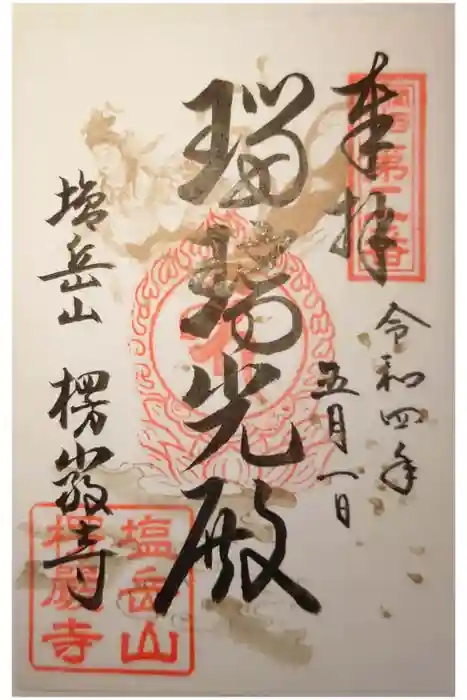 奉拝
令和四年
五月一日
瑠璃光殿
塩岳山 楞嚴寺
第二番
塩岳山
楞嚴寺